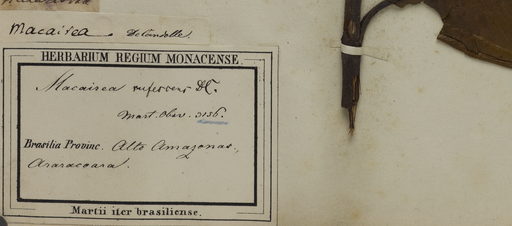 Macairea DeCandolle.
HERBARIUM REGIUM MONACENSE.
Macairea rufescens DC.
Mart. Obsv. 3136.
Brasilia Provinc. Alto Amazonas,
Araracoara.
Martii iter brasiliense.